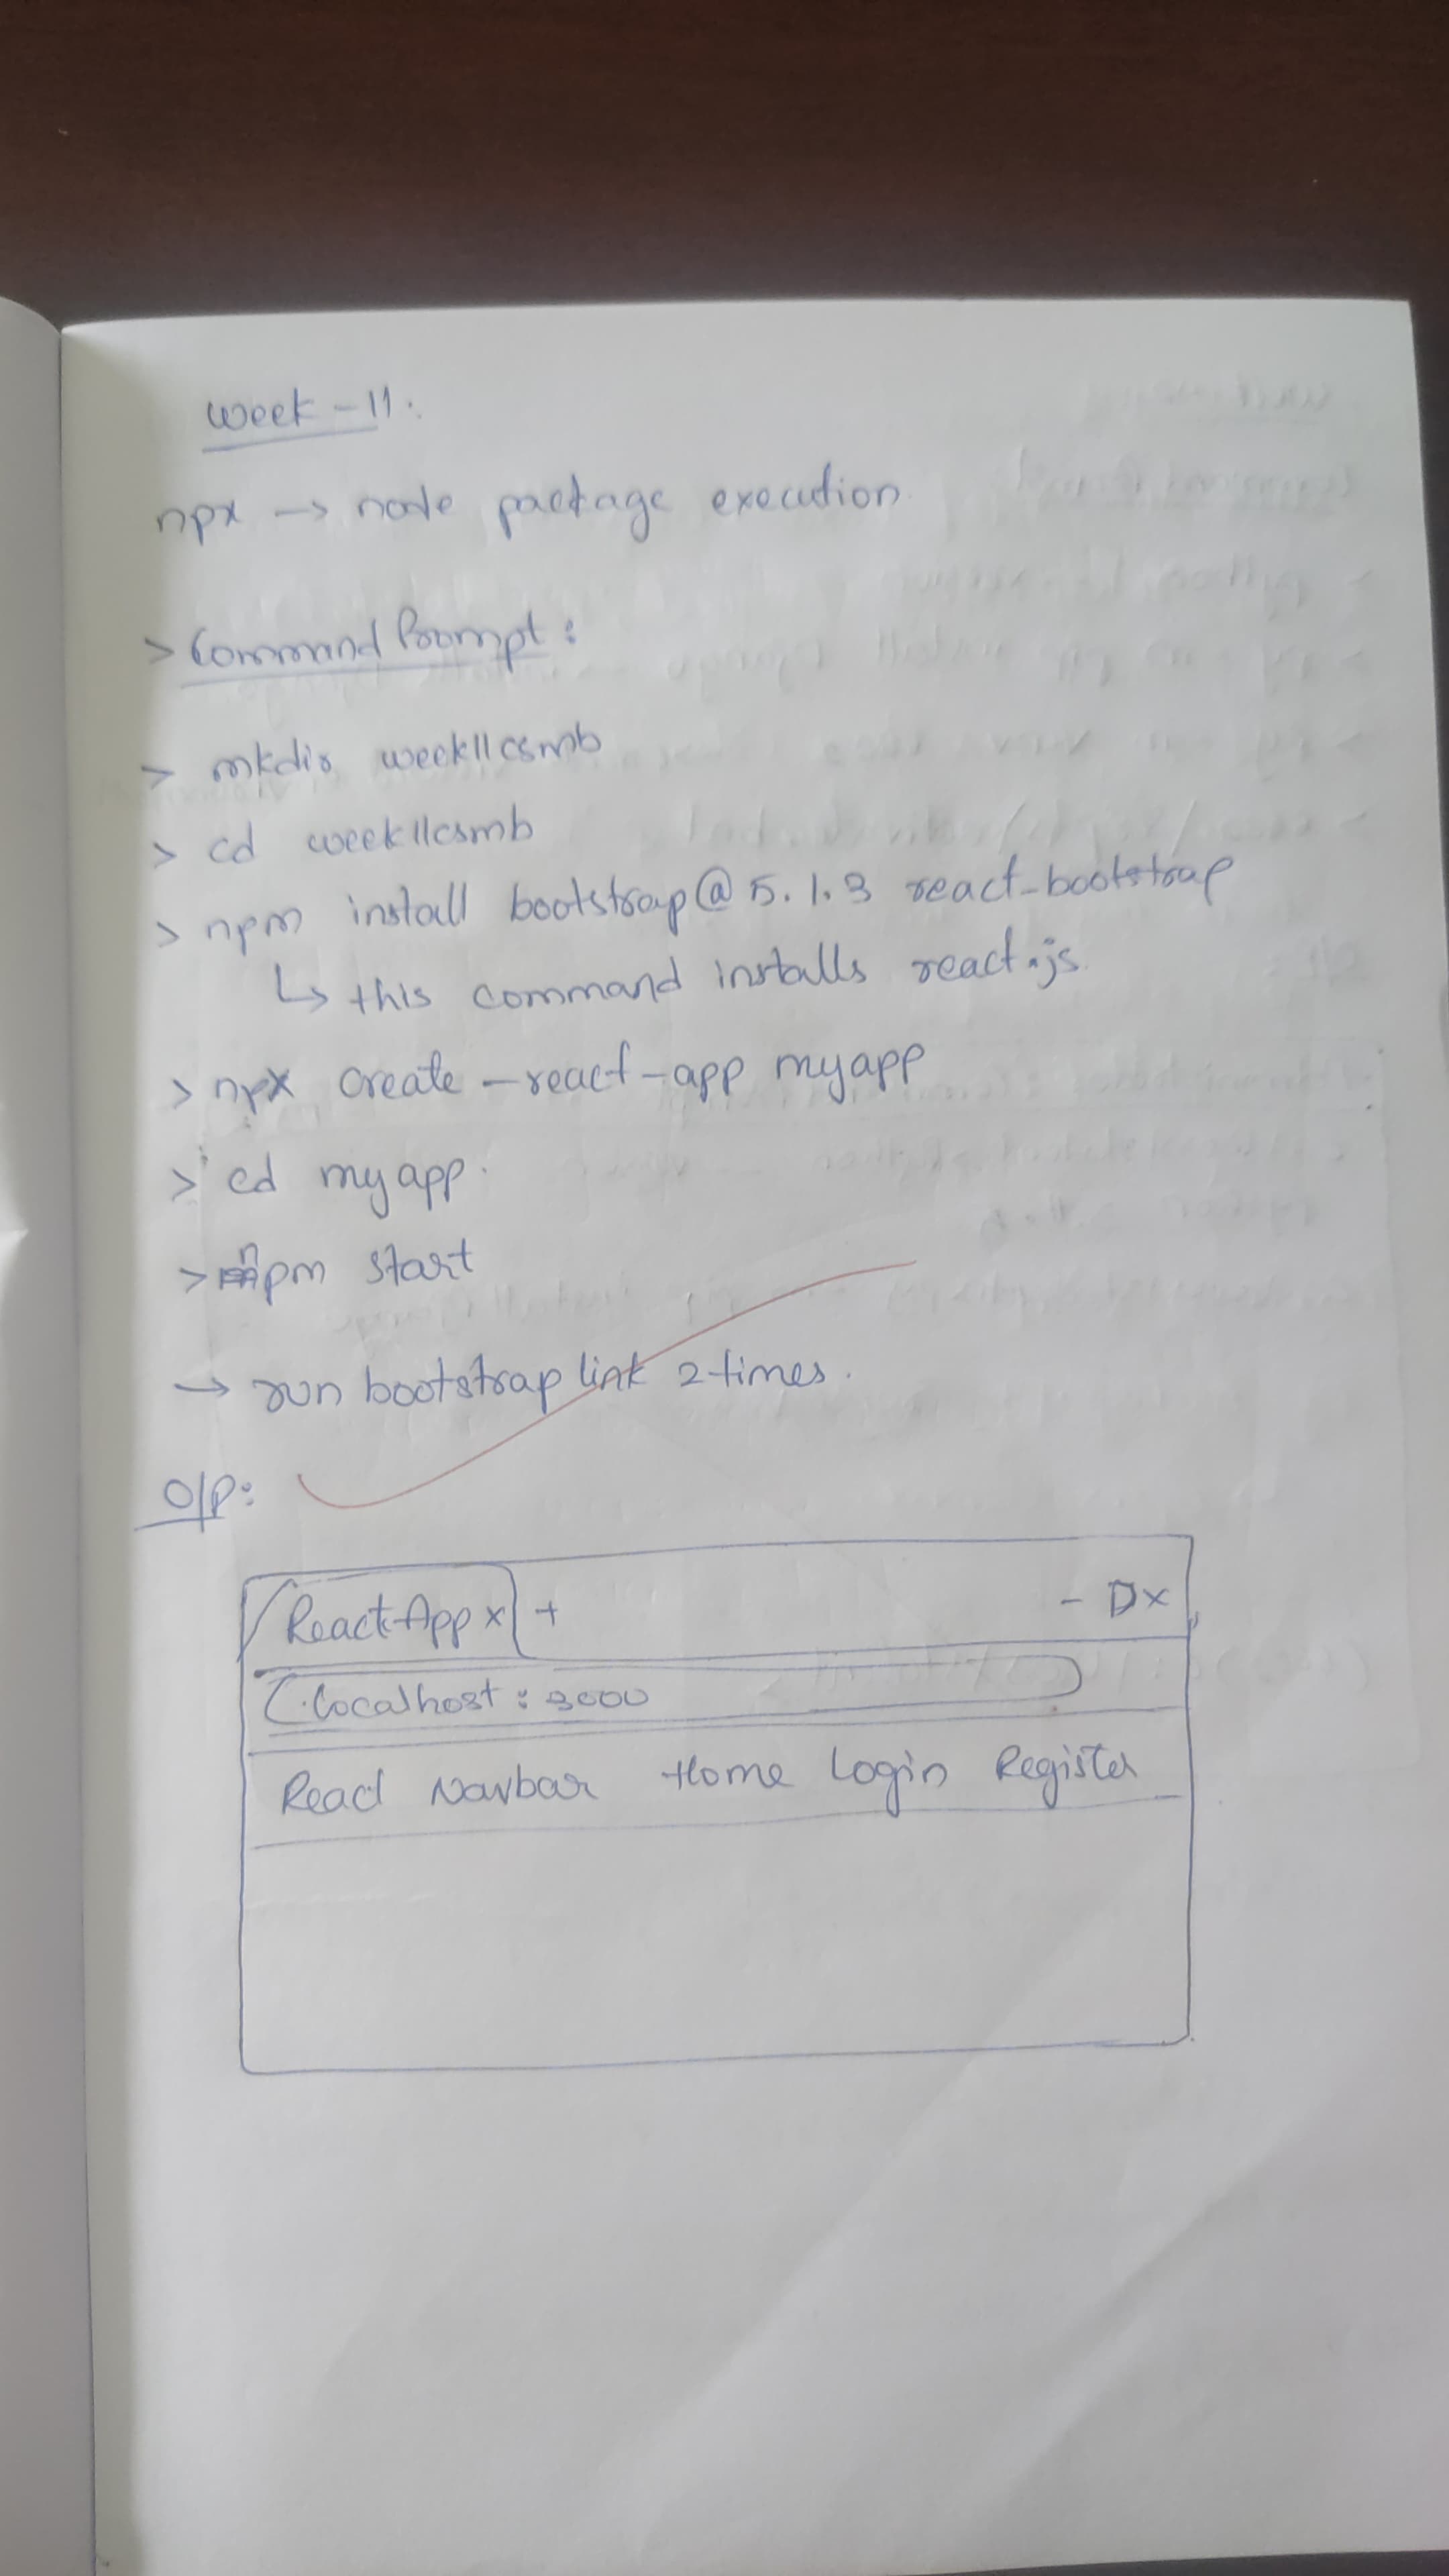 Week - 11:
npx → node package execution
> Command Prompt:
> mkdir week11csmb
> cd week11csmb
> npm install bootstrap@5.1.3 react-bootstrap
↳ this command installs react.js.
> npx create-react-app myapp
> cd myapp.
> npm start
→ run bootstrap link 2 times.
O/P:
React App x +
localhost : 3000
Read Navbar Home Login Register